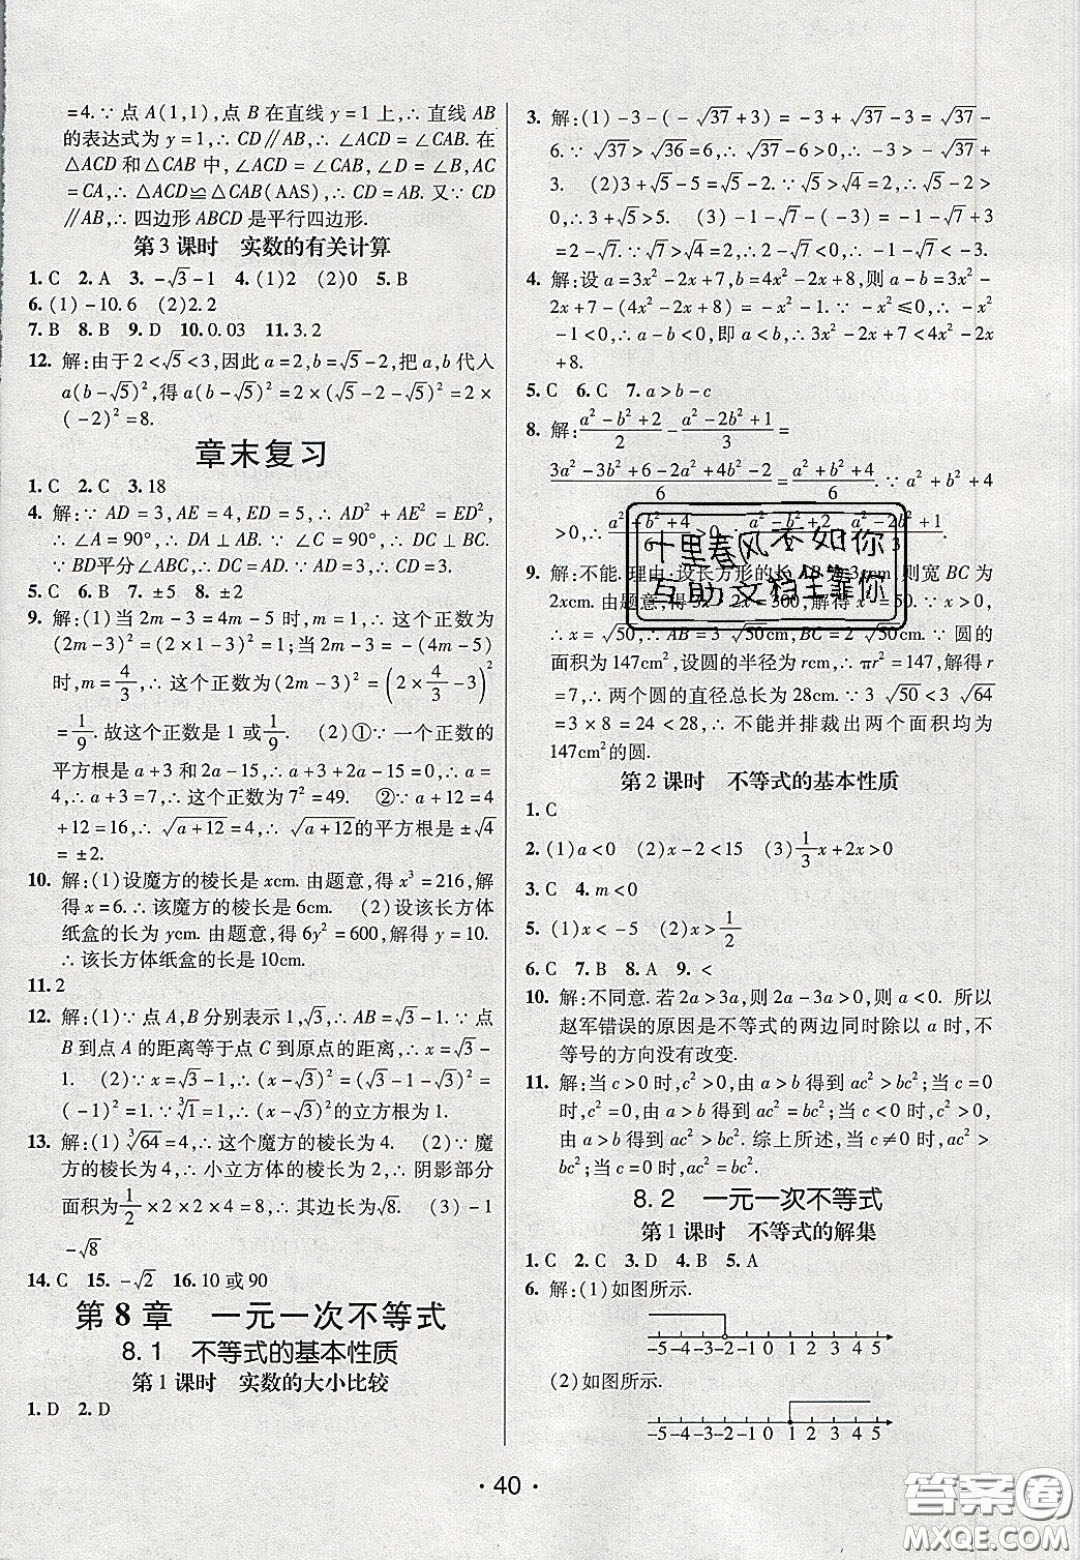 =4.∵点A(1,1),点B在直线y=1上,∴直线AB
的表达式为y=1,∴CD∥AB,∴∠ACD=∠CAB.在
△ACD和△CAB中,∠ACD=∠CAB,∠D=∠B,AC
=CA,∴△ACD≌△CAB(AAS),∴CD=AB.又∵CD
∥AB,∴四边形ABCD是平行四边形.
第3课时 实数的有关计算
1.C 2.A 3.-√3-1 4.(1)2 (2)0 5.B
6.(1)-10.6 (2)2.2
7.B 8.B 9.D 10.0.03 11.3.2
12.解:由于2<√5<3,因此a=2,b=√5-2,把a,b代入
a(b-√5)²,得a(b-√5)²=2×(√5-2-√5)²=2×
(-2)²=8.
章末复习
1.C 2.C 3.18
4.解:∵AD=3,AE=4,ED=5,∴AD²+AE²=ED²,
∴∠A=90°,∴DA⊥AB.∵∠C=90°,∴DC⊥BC.
∵BD平分∠ABC,∴DC=AD.∵AD=3,∴CD=3.
5.C 6.B 7.±5 8.±2
9.解:(1)当2m-3=4m-5时,m=1,∴这个正数为
(2m-3)²=(2×1-3)²=1;当2m-3=-(4m-5)
时,m=4/3,∴这个正数为(2m-3)²=(2×4/3-3)²
=1/9.故这个正数是1或1/9. (2)①∵一个正数的
平方根是a+3和2a-15,∴a+3+2a-15=0,∴a=
4,∴a+3=7,∴这个正数为7²=49. ②∵a+12=4
+12=16,∴√(a+12)=4,∴√(a+12)的平方根是±√4
=±2.
10.解:(1)设魔方的棱长是xcm.由题意,得x³=216,解
得x=6.∴该魔方的棱长是6cm. (2)设该长方体
纸盒的长为ycm.由题意,得6y²=600,解得y=10.
∴该长方体纸盒的长是10cm.
11.2
12.解:(1)∵点A,B分别表示1,√3,∴AB=√3-1.∵点
B到点A的距离等于点C到原点的距离,∴x=√3-
1. (2)∵x=√3-1,∴(x-√3)²=(√3-1-√3)²=
(-1)²=1.∵∛1=1,∴(x-√3)²的立方根为1.
13.解:(1)∛64=4,∴这个魔方的棱长为4. (2)∵魔
方的棱长为4,∴小立方体的棱长为2,∴阴影部分
面积为1/2×2×2×4=8,∴其边长为√8. (3)-1
-√8
14.C 15.-√2 16.10或90
第8章 一元一次不等式
8.1 不等式的基本性质
第1课时 实数的大小比较
1.D 2.D
3.解:(1)-3-(-√37+3)=-3+√37-3=√37-
6.∵√37>√36=6,∴√37-6>0,∴-3>-√37+
3. (2)3+√5-5=√5-2.∵√5>√4=2,∴√5-2>
0,∴3+√5>5. (3)-1-√7-(-3)=-1-√7+3
=2-√7.∵√7>√4=2,∴2-√7<0,∴-1-√7<-3.
4.解:设a=3x²-2x+7,b=4x²-2x+8,则a-b=3x²-
2x+7-(4x²-2x+8)=-x²-1.∵-x²≤0,∴-x²
-1<0,∴a-b<0,即a<b,∴3x²-2x+7<4x²-2x
+8.
5.C 6.C 7.a>b-c
8.解:(a²-b²+2)/2-(a²-2b²+1)/3=
(3a²-3b²+6-2a²+4b²-2)/6=(a²+b²+4)/6.∵a²+b²+4
>0,∴(a²+b²+4)/6>0,∴(a²-b²+2)/2>(a²-2b²+1)/3.
9.解:不能.理由:设长方形的长AB为3xcm,则宽BC为
2xcm.由题意,得3x·2x=300,解得x²=50.∵x>0,
∴x=√50,∴AB=3√50cm,BC=2√50cm.∵圆的
面积为147cm²,设圆的半径为rcm,∴πr²=147,解得r
=7,∴两个圆的直径总长为28cm.∵3√50<3√64
=3×8=24<28,∴不能并排裁出两个面积均为
147cm²的圆.
第2课时 不等式的基本性质
1.C
2.(1)a<0 (2)x-2<15 (3)1/3x+2x>0
3.C 4.m<0
5.(1)x<-5 (2)x>1/2
6.C 7.B 8.A 9.<
10.解:不同意.若2a>3a,则2a-3a>0,则a<0. 所以
赵军错误的原因是不等式的两边同时除以a时,不
等号的方向没有改变.
11.解:当c>0时,c²>0,由a>b得到ac²>bc²;当c=0
时,c²=0,由a>b得到ac²=bc²;当c<0时,c²>0,
由a>b得到ac²>bc².综上所述,当c≠0时,ac²>
bc²;当c=0时,ac²=bc².
8.2 一元一次不等式
第1课时 不等式的解集
1.C 2.C 3.D 4.B 5.A
6.解:(1)如图所示.
-5-4-3-2-1 0 1 2 3 4 5
(2)如图所示.
-5-4-3-2-1 0 1 2 3 4 5
十里春风不如你
互助文档全靠你
·40·
答案圈
MXQE.COM